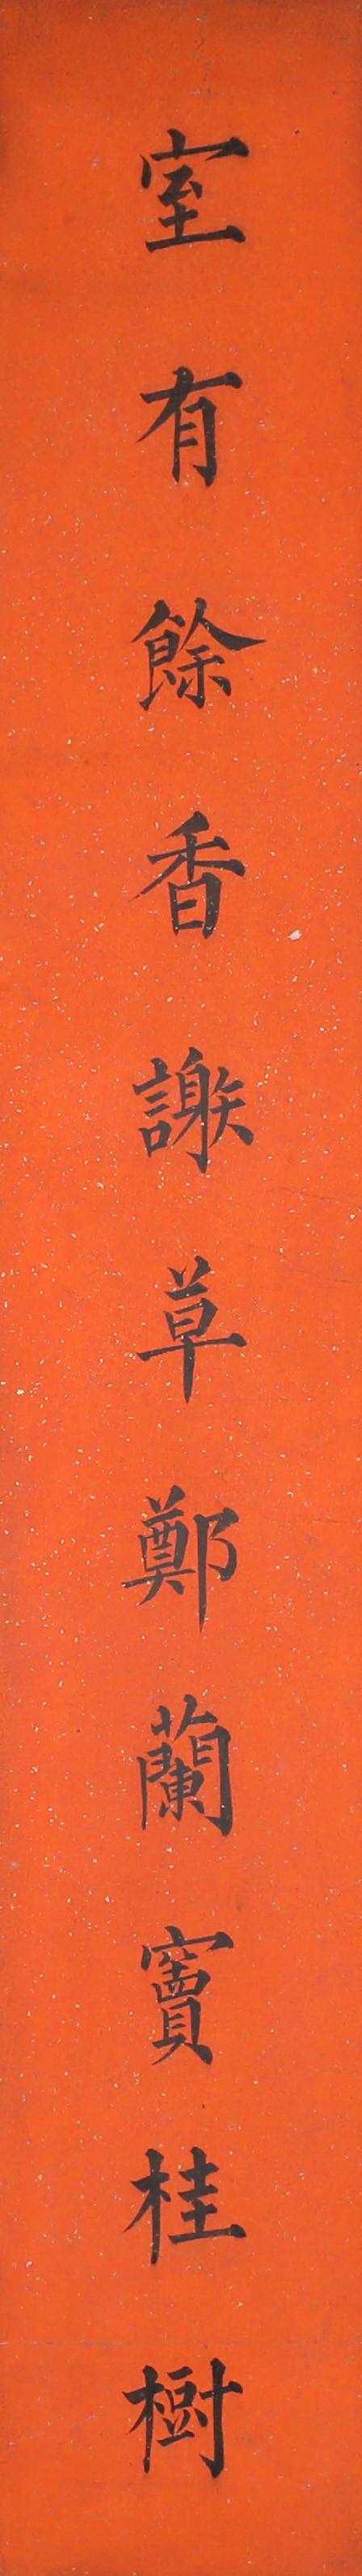 室有餘香謝草鄭蘭竇桂樹